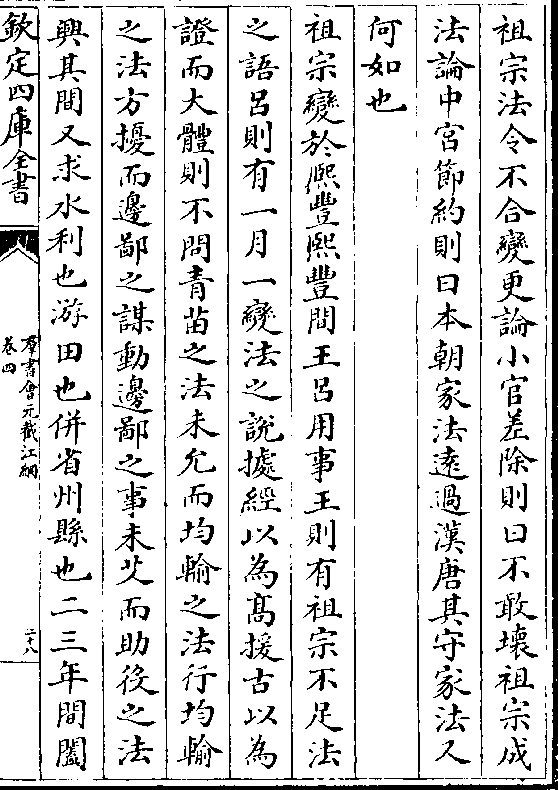 祖宗法令不合變更論小官差除則曰不敢壞祖宗成
法論中宮節約則曰本朝家法逺過漢唐其守家法又
何如也
祖宗變於熈豐熈豐間王吕用事王則有祖宗不足法
之語吕則有一月一變法之說據經以為髙援古以為
證而大體則不問青苗之法未允而均輸之法行均輸
之法方擾而邊鄙之謀動邊鄙之事未艾而助役之法
興其間又求水利也游田也併省州縣也二三年間闔
欽定四庫全書
羣書會元截江網
卷四
二十八